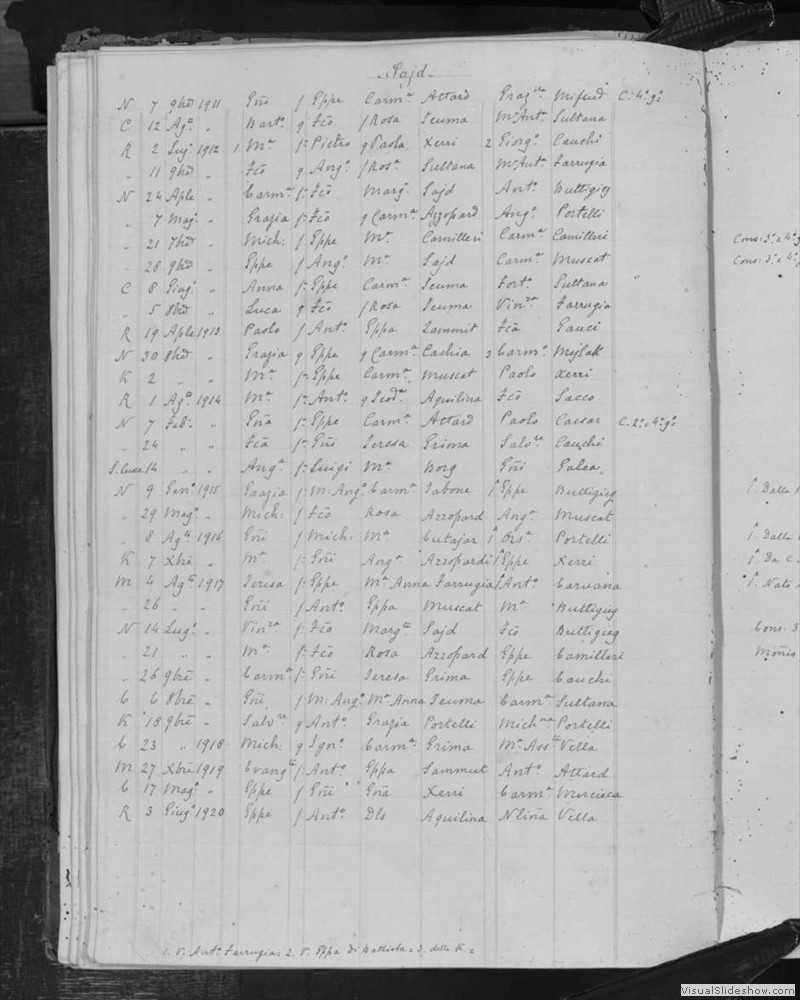 Sajd
N 7 9bre 1911 Gñi f Eppe Carmª Attard Grazª Mifsud C. 4º gº
C 12 Agº " Bartº g Fcõ f Rosa Scuma Mª Antª Sultana
R 2 Lugº 1912 1 Mª f: Pietro g Paola Xerri 2 Giorgº Cauchi
" 11 9bre " Fcõ g Angº f Rosª Sultana Mª Antª Farrugia
N 24 Aple " Carmª f: Fcõ Margª Sajd Antº Buttigieg
" 7 Magº " Grazia f: Fcõ g Carmª Azzopard Angº Portelli
" 21 7bre " Mich: f Eppe Mª Camilleri Carmª Camilleri Cons: 3º e 4º g
" 28 9bre " Eppe f Angº Mª Sajd Carmª Muscat Cons: 3º e 4º g
C 8 Giugº " Anna f: Eppe Carmª Scuma Fortº Sultana
" 5 8bre " Luca g Fcõ f Rosa Scuma Vinzª Farrugia
R 19 Aple 1913 Paolo f Antº Eppa Zammit Fcã Gauci
N 30 8bre " Grazia g Eppe g Carmª Cachia 3 Carmº Mejlak
K 2 " " Mª f: Eppe Carmª Muscat Paolo Xerri
R 1 Agº 1914 Mª f: Antº g Teodª Aquilina Fcõ Sacco
N 7 Feb: " Gñã f: Eppe Carmª Attard Paolo Caesar C. 2º e 4º gº
" 24 " " Fcã f: Gñi Teresa Grima Salvre Cauchi
S. Luca 14 " " Angª f: Luigi Mª Borg Gñi Galea
N 9 Genº 1915 Grazia f M: Angº Carmª Tabone 1. Eppe Buttigieg 1. Dalla
" 29 Magº " Mich: f Fcõ Rosa Azzopard Angª Muscat
" 8 Agº 1916 Gñi f Mich: Mª Cutajar Portelli 1. Dalla
K 7 Xbre " Mª f: Gñi Angª Azzopardi 1. Eppe Xerri 1. Da C.
M 4 Agº 1917 Teresa f: Eppe Mª Anna Farrugia 1. Antº Caruana 1. Nato
" 26 " " Gñi f Antº Eppa Muscat Mª Buttigieg
N 14 Lugº " Vinzª f: Fcõ Margta Sajd Fcõ Buttigieg Cons: 3
" 21 " " Mª f: Fcõ Rosa Azzopard Eppe Camilleri
" 26 9bre " Carmª f: Gñi Teresa Grima Eppe Cauchi
C 6 8bre " Gñi f M: Angº Mª Anna Scuma Carmª Sultana
K 18 9bre " Salvre g Antº Grazia Portelli Michna Portelli
C 23 " 1918 Mich: g Ignº Carmª Grima Mª Assta Vella
M 27 Xbre 1919 Evangta f: Antº Eppa Sammut Antº Attard
C 17 Magº " Eppe f Gñi Gñã Xerri Carmª Mercieca
R 3 Giugº 1920 Eppe f Antº Dls Aquilina Nlina Vella
1. v. Antº Farrugia = 2. v. Eppa di Battista = 3. della K =
VisualSlideshow.com